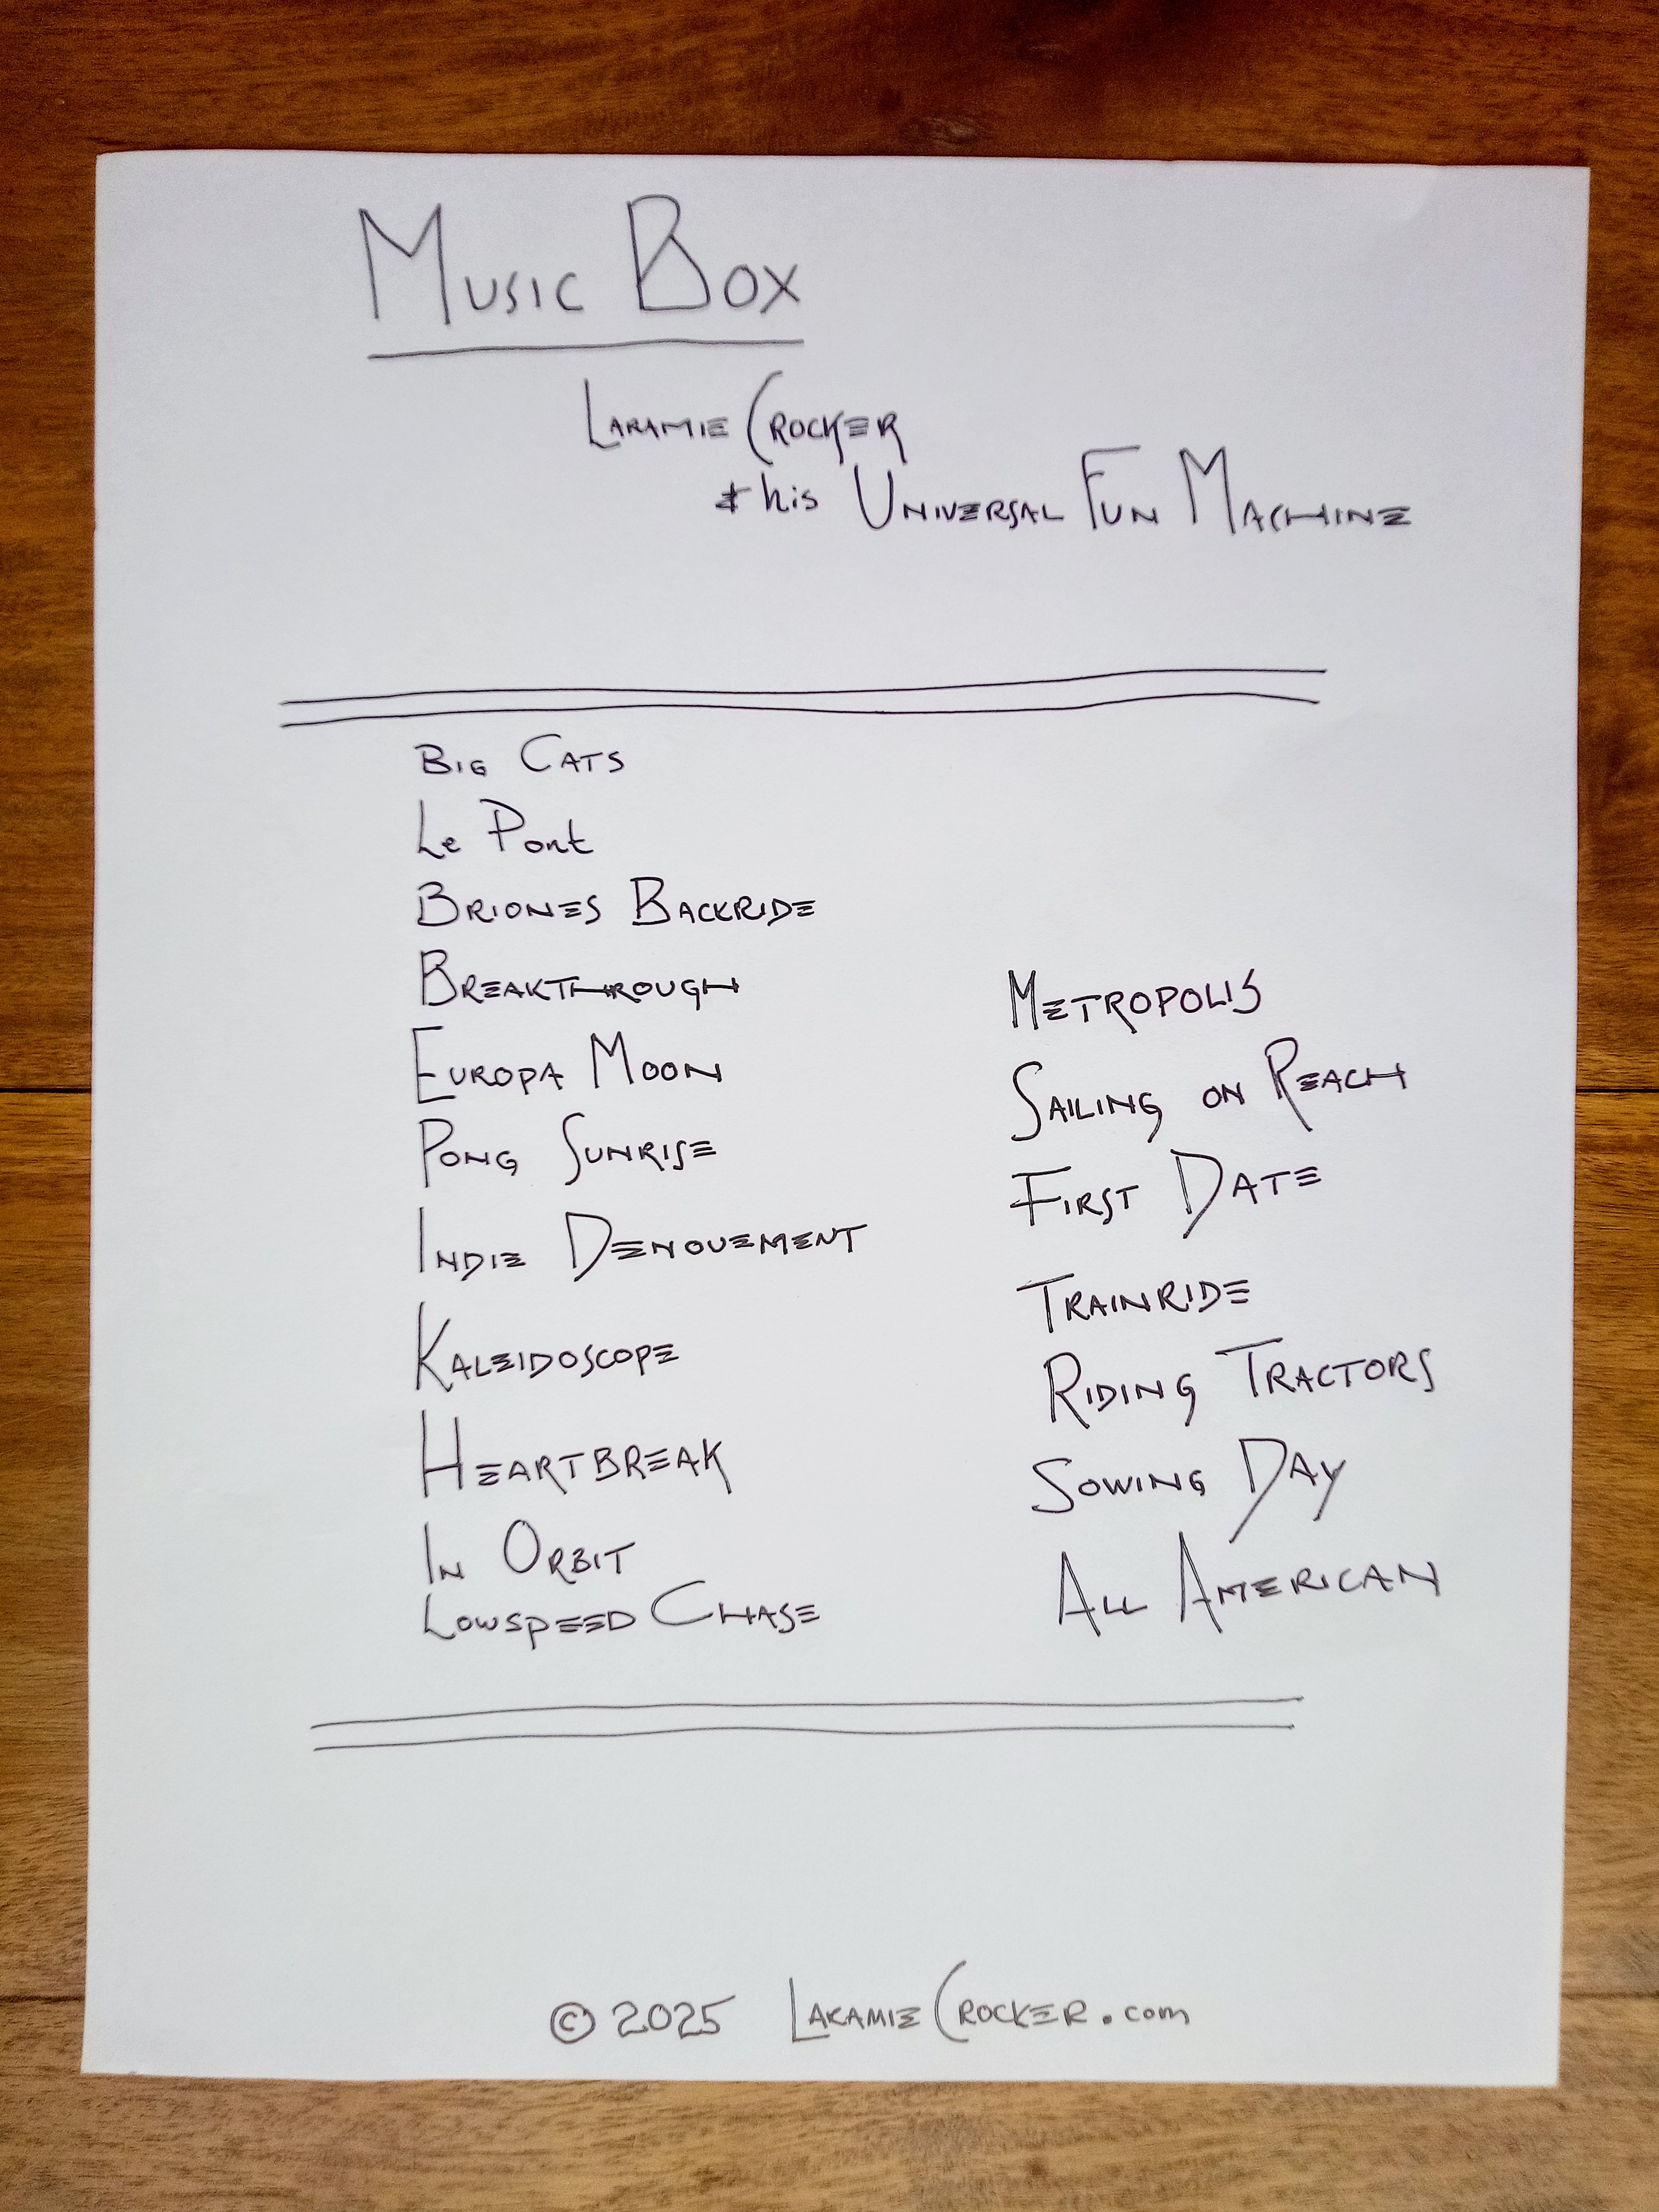 Music Box
Laramie Crocker
& his Universal Fun Machine
Big Cats
Le Pont
Briones Backride
Breakthrough
Europa Moon
Pong Sunrise
Indie Denouement
Kaleidoscope
Heartbreak
In Orbit
Lowspeed Chase
Metropolis
Sailing on Reach
First Date
Trainride
Riding Tractors
Sowing Day
All American
© 2025 LaramieCrocker.com